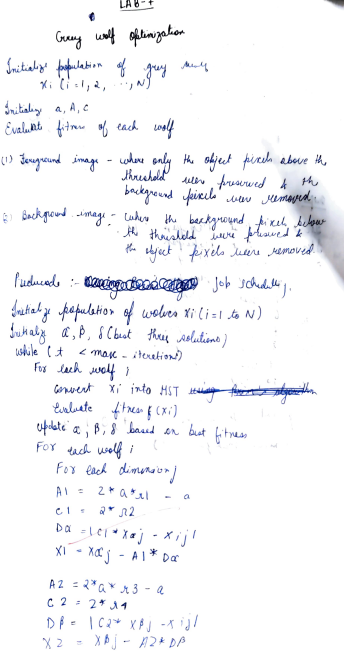 LAB-7
Grey wolf optimization
Initialize population of grey
Xi (i = 1, 2, ..., N)
Initialize a, A, C
Evaluate fitness of each wolf
(1) Foreground image - where only the object pixels above the
threshold were preserved & the
background pixels were removed.
Background image - where the background pixels below
the threshold were preserved &
the object pixels were removed.
:- Job scheduling.
Initialize population of wolves Xi (i = 1 to N)
Initialize α, β, δ (best three solutions)
while (t < max - iterations)
For each wolf i
convert Xi into MST
Evaluate fitness f(Xi)
update α, β, δ based on best fitness
For each wolf i
For each dimension j
A1 = 2 * a * r1 - a
C1 = 2 * r2
Dα = |C1 * Xαj - Xij|
X1 = Xαj - A1 * Dα
A2 = 2 * a * r3 - a
C2 = 2 * r4
Dβ = |C2 * Xβj - Xij|
X2 = Xβj - A2 * Dβ